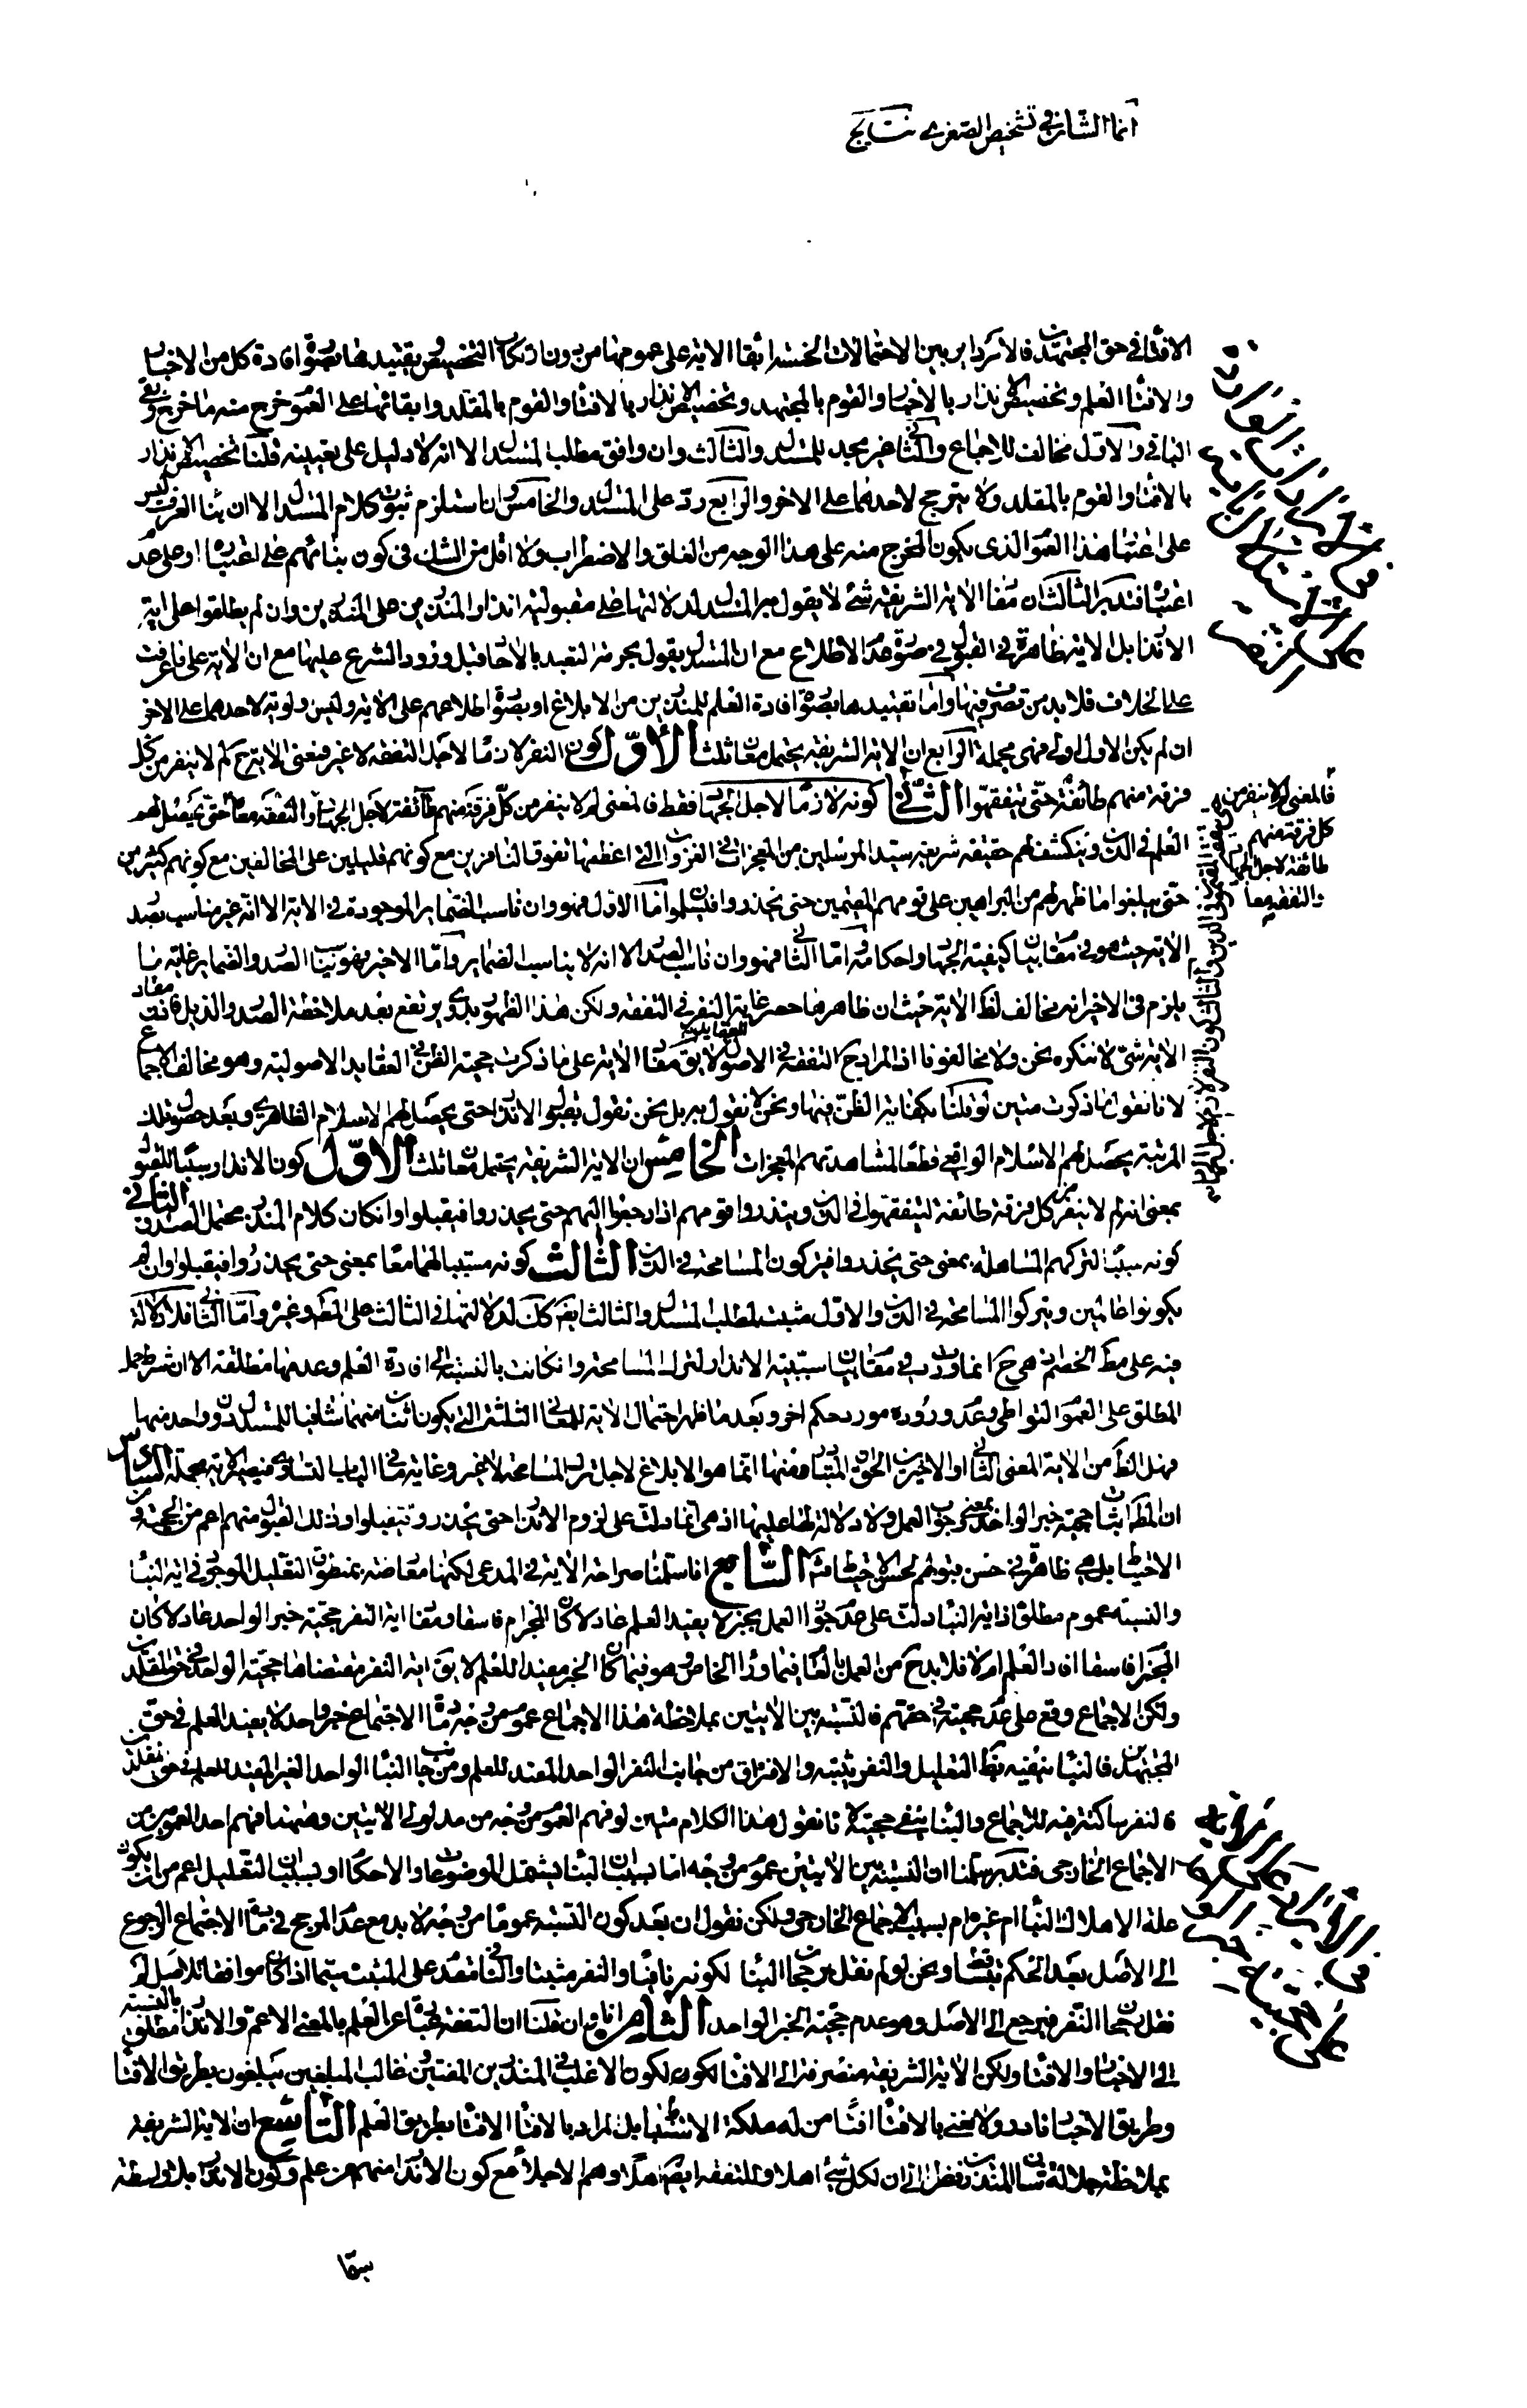 انما الشان في تشخيص الصغرى نتايج
الافتا في حق المجتهدين فالامر داير بين الاحتمالات الخمسة ابقا الاية على عمومها من دون ارتكاب التخصيص وتقييدها بصورة افادة كل من الاخبار
والافتا العلم وتخصيص الانذار بالاخبار والقوم بالمجتهد وتخصيص الانذار بالافتا والقوم بالمقلد وابقائها على العموم خرج منه ما خرج وبقى
الباقي والاول مخالف للاجماع والثاني غير مجد للمستدل والثالث وان وافق مطلب المستدل الا انه لا دليل على تعيينه قلنا تخصيص الانذار
بالافتا والقوم بالمقلد ولا ترجيح لاحدهما على الاخر والرابع رد على المستدل والخامس وان استلزم ثبوت كلام المستدل الا ان بنا العرف ليس
على اعتبار هذا العموم الذي يكون المخرج منه على هذا الوجه من الغلق والاضطراب ولا اقل من الشك في كون بنائهم على اعتباره او على عدم
اعتباره فتدبر الثالث ان مفاد الاية الشريفة شئ لا يقول به المستدل لدلالتها على مقبولية انذار المنذرين على المنذرين وان لم يطلعوا على اية
الانذار بل الاية ظاهرة في القبول في صورة عدم الاطلاع مع ان المستدل يقول بحرمة التعبد بالاحاد قبل ورود الشرع عليها مع ان الاية على ما عرفت
على الخلاف فلا بد من تصرف فيها واما تقييدها بصورة افادة العلم للمنذرين من الابلاغ او بصورة اطلاعهم على الاية وليس اولوية لاحدهما على الاخر
ان لم يكن الاول اولى فهي مجملة الرابع ان الاية الشريفة يحتمل معان ثلث الاول كون النفر لازما لاجل التفقه لا غير فمعنى الاية ح لم لا ينفر من كل
فرقة منهم طائفة حتى يتفقهوا الثاني كونه لازما لاجل الجهاد فقط فالمعنى لم لا ينفر من كل فرقة منهم طائفة لاجل الجهاد والتفقه معا حتى يحصل لهم
العلم في الدين وينكشف لهم حقيقة شريعة سيد المرسلين من المعجزات في الغزوات التي اعظمها تفوق النافرين مع كونهم قليلين على المخالفين مع كونهم كثيرين
حتى يبلغوا ما ظهر لهم من البراهين على قومهم المقيمين حتى يحذروا فيسلموا اما الاول فهو وان ناسب الضماير الموجودة في الاية الا انه غير مناسب بصدر
الاية حيث هو في مقام بيان كيفية الجهاد واحكامه اما الثاني فهو وان ناسب الصدر الا انه لا يناسب الضماير واما الاخير فهو يناسب الصدر والضماير غاية ما
يلزم في الاخير انه مخالف لظ الاية حيث ان ظاهرها حصر غاية النفر في التفقه ولكن هذا الظهور بدوي يرتفع بعد ملاحظة الصدر والذيل فاذن مفاد
الاية شئ لا ننكره نحن ولا مخالفونا اذ المراد ح التفقه في الاصول لا يق مفاد الاية على ما ذكرت حجية الظن في العقايد الاصولية وهو مخالف الاجماع
لانا نقول ما ذكرت متين لو قلنا بكفاية الظن فيها ونحن لا نقول به بل نحن نقول بقبول الانذار حتى يحصل لهم الاسلام الظاهري وبعد حصول تلك
المرتبة يحصل لهم الاسلام الواقعي قطعا لمشاهدتهم المعجزات الخامس ان الاية الشريفة يحتمل معان ثلث الاول كون الانذار سببا للقبول
بمعنى انه لم لا ينفر من كل فرقة طائفة ليتفقهوا في الدين وينذروا قومهم اذا رجعوا اليهم حتى يحذروا فيقبلوا وان كان كلام المنذر محتمل الصدق الثاني
كونه سببا لتركهم المساهلة بمعنى حتى يحذروا فيتركون المسامحة في الدين الثالث كونه مسببا لهما معا بمعنى حتى يحذروا فيقبلوا وان لم
يكونوا عالمين ويتركوا المسامحة في الدين والاول مثبت لمطلب المستدل والثالث ايضا كك لدلالتها في الثالث على المط وغيره واما الثاني فلا دلالة
فيه على مط الخصم اذ هي ح انما وردت في مقام بيان سببية الانذار لترك المسامحة وان كانت بالنسبة الى افادة العلم وعدمها مطلقة الا ان شرط حمل
المطلق على العموم التواطي وعدم وروده مورد حكم اخر وبعد ما ظهر احتمال الاية للمعاني الثلثة التي يكون اثنان منهما نافعا للمستدل دون واحد منها
فهل الظ من الاية المعنى الثاني او الاخيرين الحق المتبادر منها انما هو الابلاغ لاجل ترك المسامحة لا غير وغاية ما في الباب التساوي فيصير الاية مجملة السادس
ان المط اثبات حجية خبر الواحد بمعنى وجوب العمل ولا دلالة لها عليها اذ هي انما دلت على لزوم الانذار حتى يحذرون فيقبلوا وذلك القبول منهم اعم من الحجية ومن
الاحتياط بل هي ظاهرة في حسن قبولهم لحسن الاحتياط فتم السابع انا سلمنا صراحة الاية في المدعى لكنها معارضة بمنطوق التعليل الموجود في اية النبأ
والنسبة عموم مطلق اذ اية النبأ دلت على عدم جواز العمل بخبر لا يفيد العلم عادلا كان المخبر ام فاسقا ومفاد اية النفر حجية خبر الواحد عادلا كان
المخبر ام فاسقا افاد العلم ام لا فلا بد ح من العمل بالعام فيما وراء الخاص وهو فيما كان الخبر مفيدا للعلم لا يق اية النفر مقتضاها حجية الواحد في حق المقلدين
ولكن الاجماع وقع على عدم حجيته في حقهم فالنسبة بين الايتين بملاحظة هذا الاجماع عموم من وجه مادة الاجتماع خبر واحد لا يفيد العلم في حق
المجتهدين فالنبأ ينفيه بظ التعليل والنفر يثبته والافتراق من جانب النفر الواحد المفيد للعلم ومن جانب النبأ الواحد الغير المفيد للعلم في حق المقلدين
فالنفر ساكتة فيه للاجماع والنبأ ينفي حجيته لانا نقول هذا الكلام متين لو فهم العموم من وجه من مدلولي الايتين وضمهما فهم احد العمومين من
الاجماع الخارجي فتدبر سلمنا ان النسبة بين الايتين عموم من وجه اما بسبب ان النبأ يشتمل الموضوعات والاحكام او بسبب ان التعليل اعم من ان يكون
علة الاهلاك النبأ ام غيره ام بسبب الاجماع الخارجي ولكن نقول ان بعد كون النسبة عموما من وجه لا بد مع عدم المرجح في مادة الاجتماع الرجوع
الى الاصل بعد الحكم بتساقطهما ونحن لو لم نقل برجحان النبأ لكونه نافيا والنفر مثبتا والنافي مقدم على المثبت سيما اذا كان موافقا للاصل لم
نقل برجحان النفر فيرجع الى الاصل وهو عدم حجية الخبر الواحد الثامن انا وان قلنا ان التفقه عبارة عن العلم بالمعنى الاعم والانذار مطلق بالنسبة
الى الاخبار والافتا ولكن الاية الشريفة منصرفة الى الافتا لكون الاغلب في المنذرين المفتين غالب المبلغين يبلغون بطريق الافتا
وطريق الاخبار نادر ولا نعني بالافتا افتاء من له ملكة الاستنباط بل المراد بالافتا الافتا بطريق العلم التاسع ان الاية الشريفة
بملاحظة جلالة شان المنذرين نظرا الى ان لكل شئ اهلا وللتفقه ايضا اهلا وهم الاجلاء مع كون الانذار منهم عن علم وكون الانذار بلا واسطة
فالمعنى لم لا ينفر من
كل فرقة منهم
طائفة لاجل الجهاد
والتفقه معا
سيما